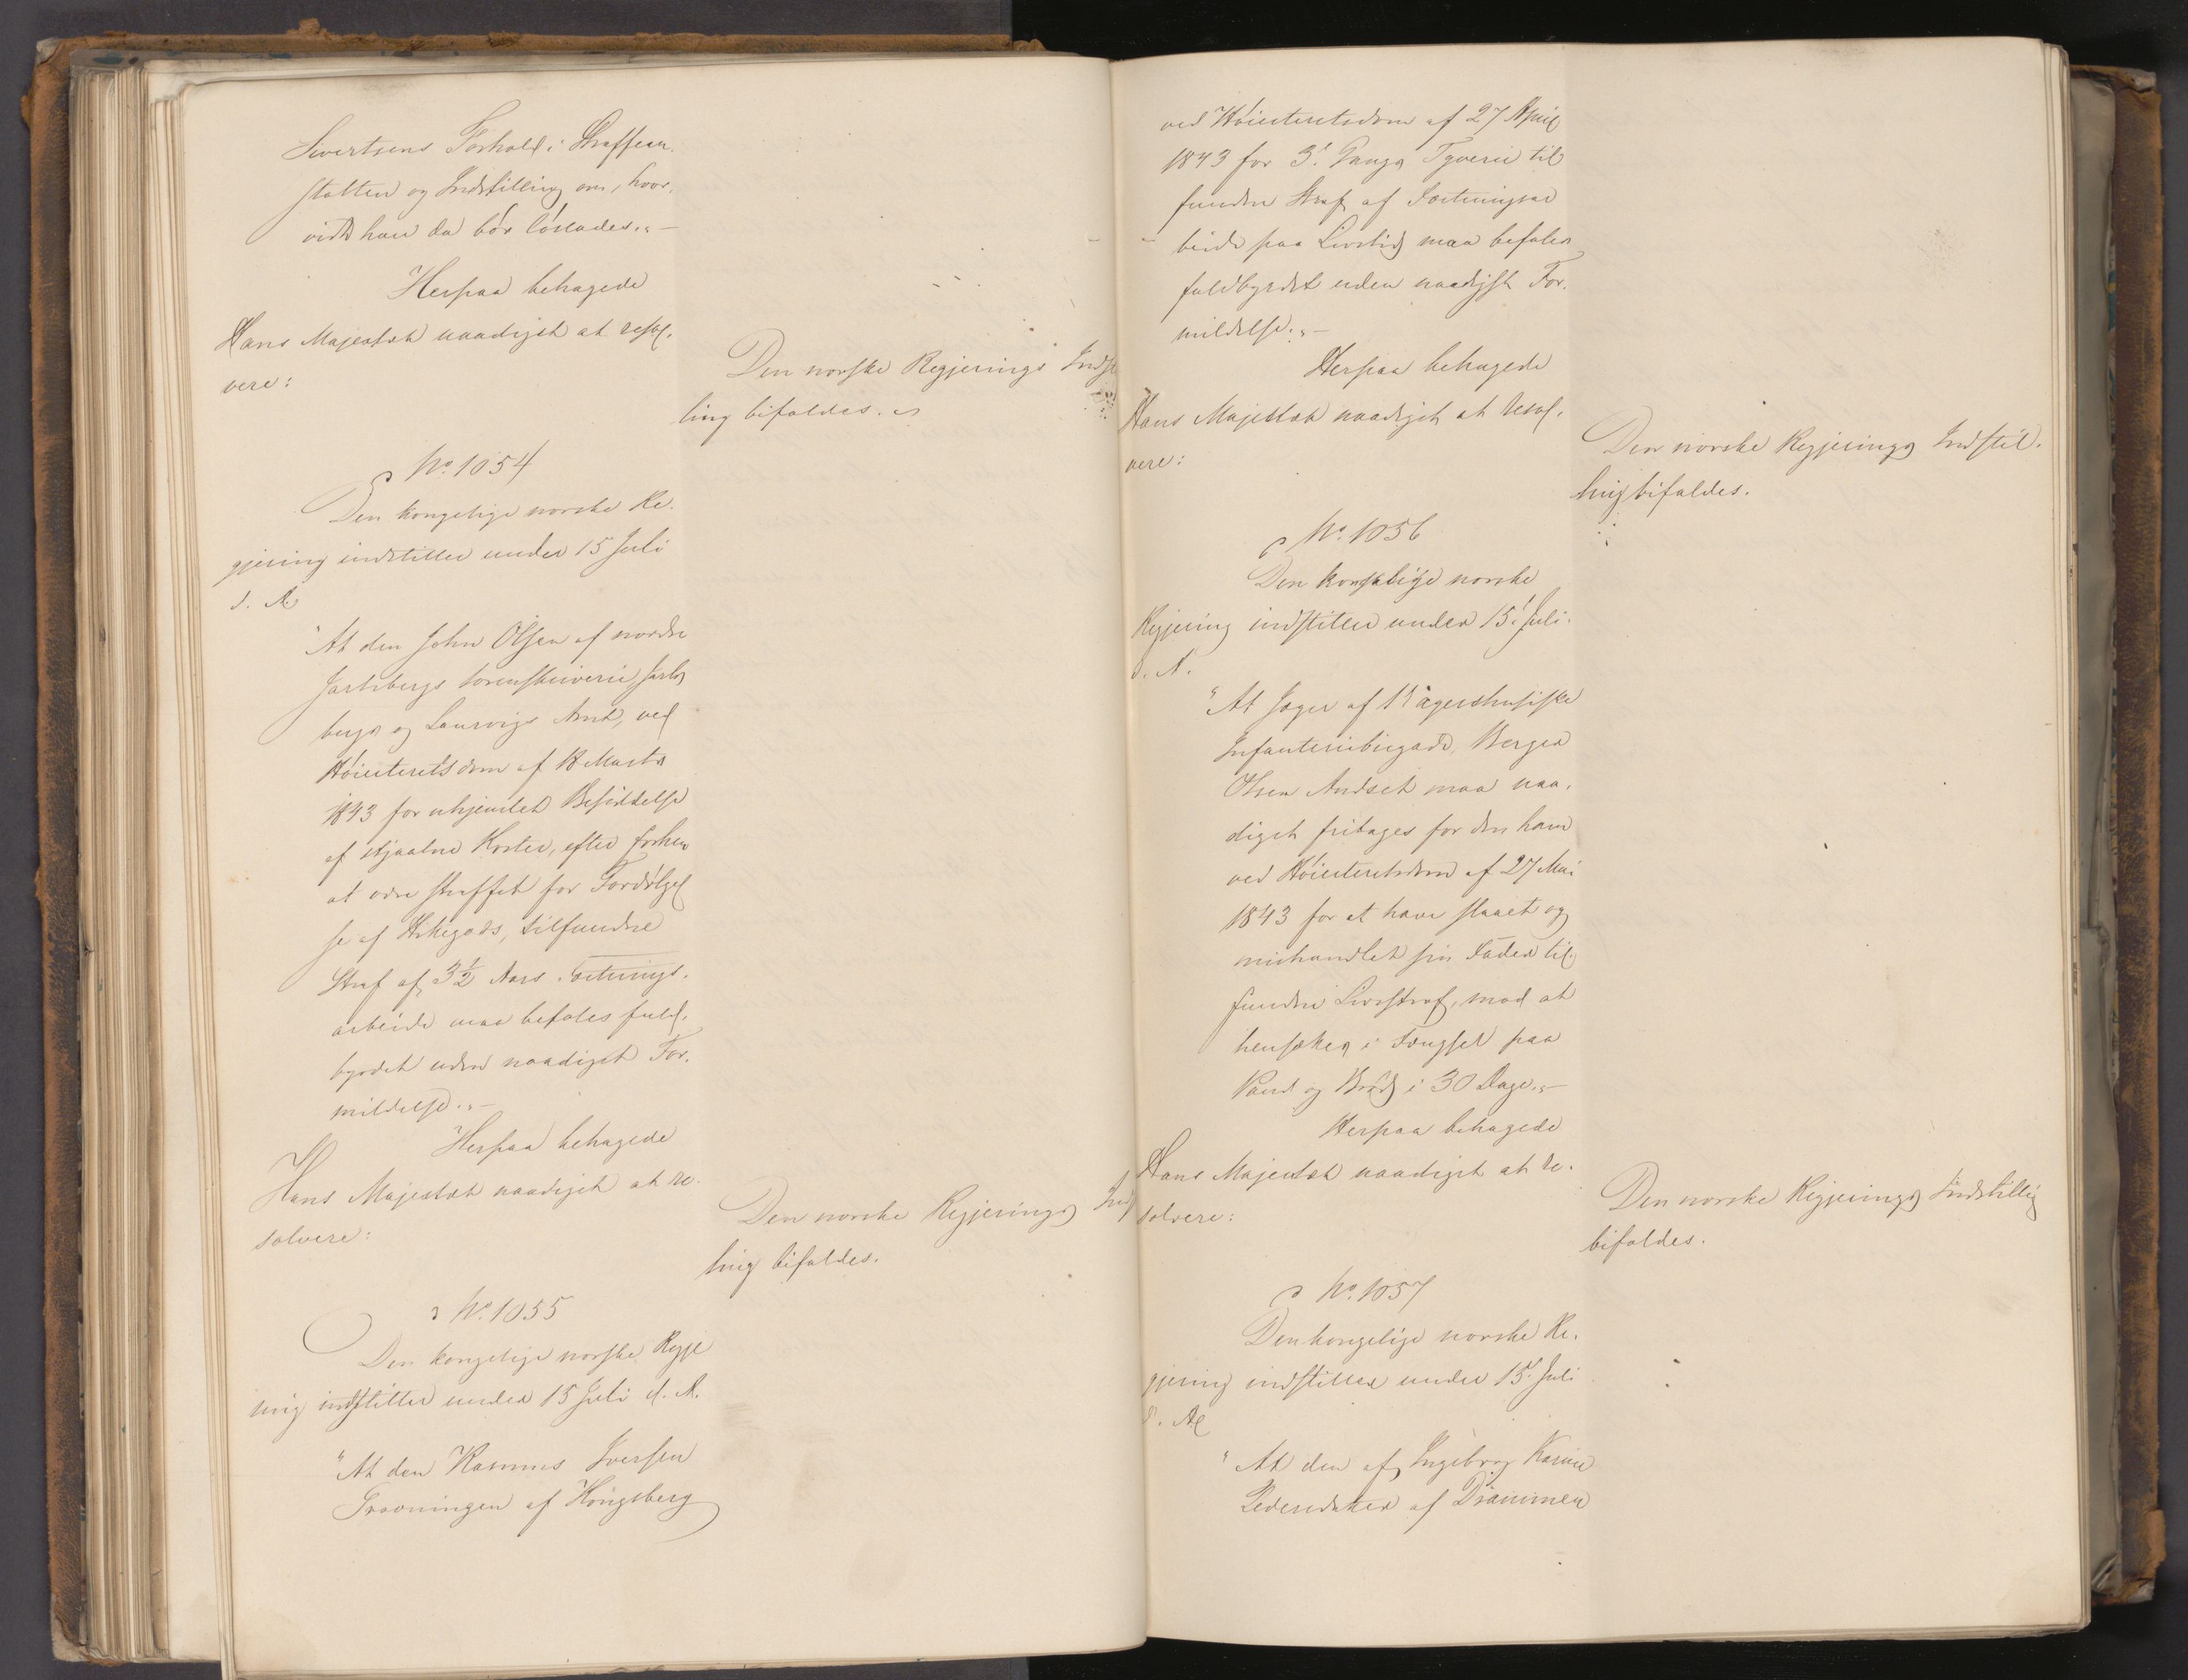 Sivertsens Forhold i Straffean-
stalten og Indstilling om, hvor-
vidt han da bør løslades."
Herpaa behagede
Hans Majestæt naadigst at resol-
vere:
Den norske Regjerings Indstil
ling bifaldes.
No. 1054
Den kongelige norske Re-
gjering indstiller under 15 Juli
d. A.
"At den John Olsen af nordre
Jarlsbergs Sorenskriverie, Jarls
bergs og Laurvigs Amt, ved
Høiesteretsdom af 18 Marts
1843 for uhjemlet Besiddelse
af stjaalne Koster, efter forhen
at være straffet for Fordølgel
se af Hittegods, tilfundne
Straf af 3½ Aars Fæstnings-
arbeide maa befales fuld-
byrdet uden naadigst For-
mildelse."
Herpaa behagede
Hans Majestæt naadigst at re-
solvere:
Den norske Regjerings Ind
ling bifaldes.
No. 1055
Den kongelige norske Regje
ring indstiller under 15 Juli d. A.
"At den Rasmus Iversen
Gravningen af Kongsberg
ved Høiesteretsdom af 27 April
1843 for 3d. Gangs Tyverie til
fundne Straf af Fæstningsar
beide paa Livstid maa befales
fuldbyrdet uden naadigst For-
mildelse."
Herpaa behagede
Hans Majestæt naadigst at resol-
vere:
Den norske Regjerings Indstil-
ling bifaldes.
No. 1056
Den kongelige norske
Regjering indstiller under 15. Juli
d. A.
"At Jæger af Aggershusiske
Infanteriebrigade, Berger
Olsen Andset maa naa-
digst fritages for den ham
ved Høiesteretsdom af 27 Mai
1843 for at have slaaet og
mishandlet sin Fader til-
fundne Livsstraf, mod at
hensættes i Fængsel paa
Vand og Brød i 30 Dage."
Herpaa behagede
Hans Majestæt naadigst at re-
solvere:
Den norske Regjerings Indstilling
bifaldes.
No. 1057
Den kongelige norske Re-
gjering indstiller under 15. Juli
d. A.
"At den af Ingeborg Karine
Pedersdatter af Drammen